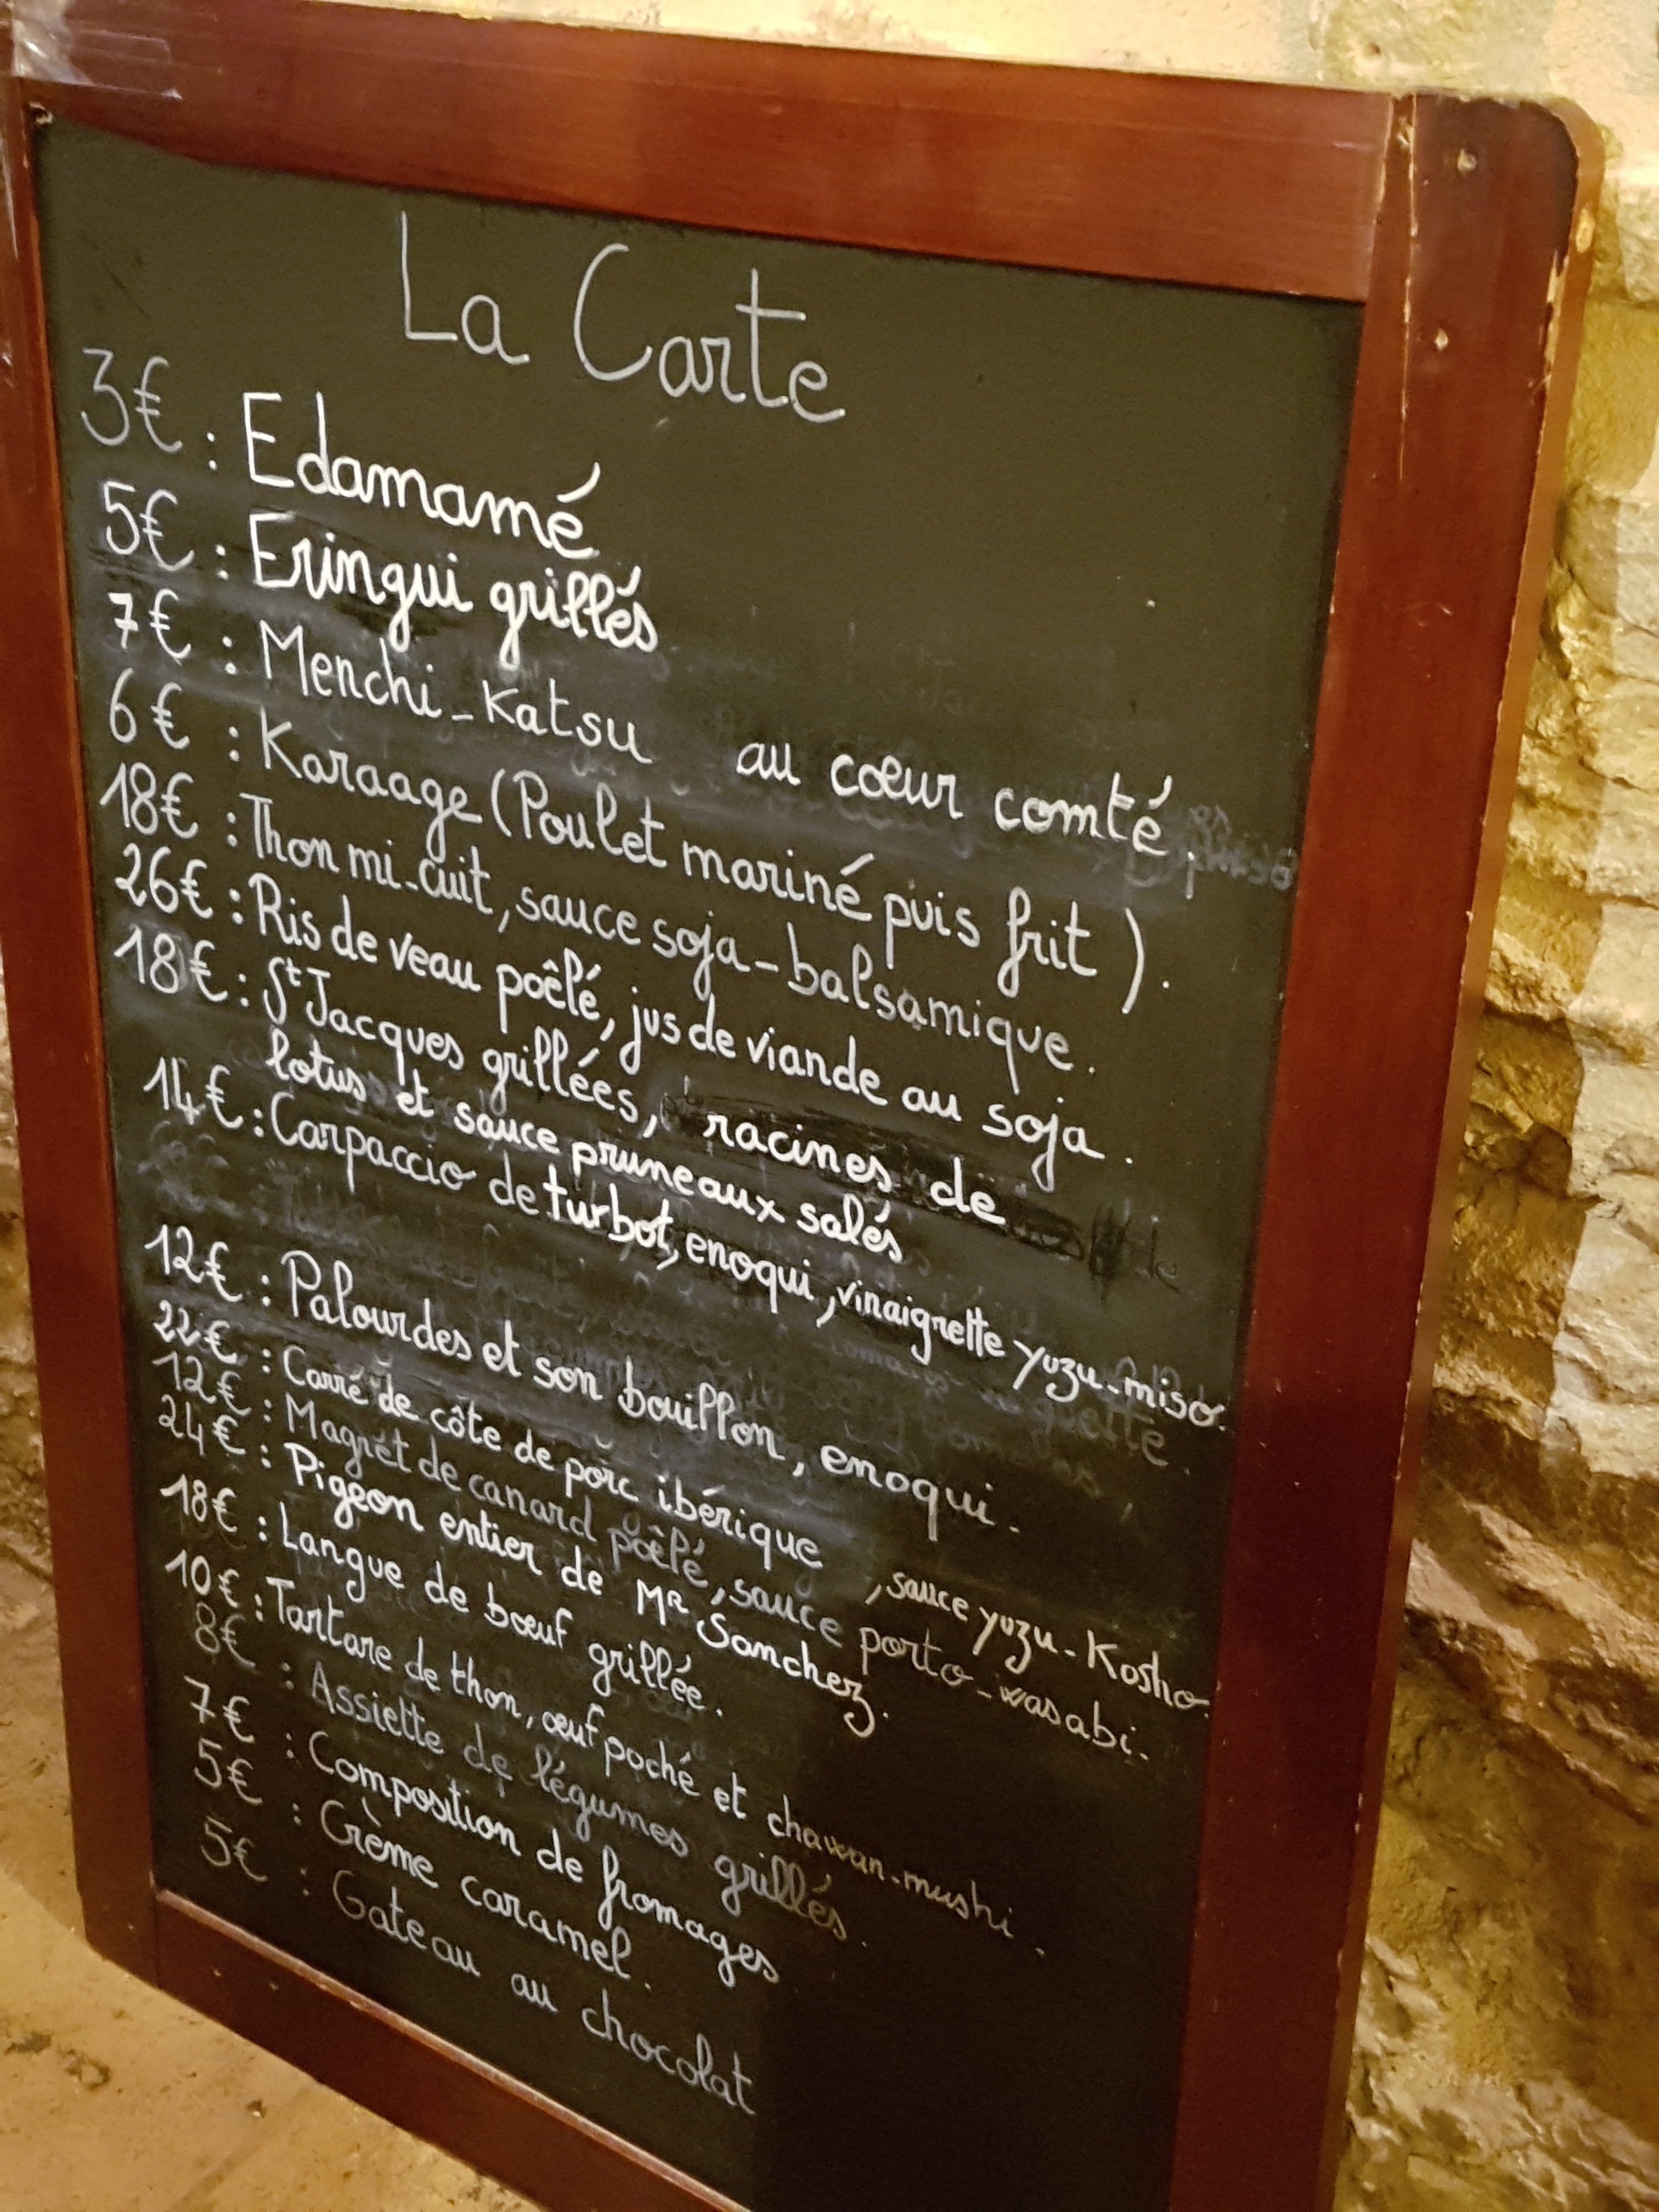 La Carte
3€ : Edamamé
5€ : Eringui grillés
7€ : Menchi-Katsu au cœur comté.
6€ : Karaage (Poulet mariné puis frit).
18€ : Thon mi-cuit, sauce soja-balsamique.
26€ : Ris de veau poêlé, jus de viande au soja.
18€ : St Jacques grillées, racines de
lotus et sauce pruneaux salés
14€ : Carpaccio de turbot, enoqui, vinaigrette yuzu-miso.
12€ : Palourdes et son bouillon, enoqui.
22€ : Carré de côte de porc ibérique, sauce yuzu-Kosho
12€ : Magret de canard poêlé, sauce porto-wasabi.
24€ : Pigeon entier de Mr Sanchez.
18€ : Langue de bœuf grillée.
10€ : Tartare de thon, œuf poché et chawan-mushi.
8€ : Assiette de légumes grillés.
7€ : Composition de fromages
5€ : Crème caramel.
5€ : Gateau au chocolat